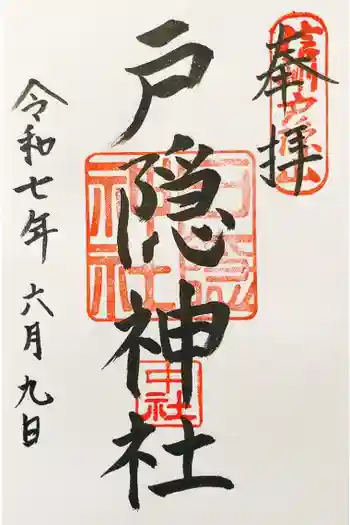 奉拝
信州戸隠山
戸隠神社
戸隠神社
中社
令和七年 六月九日